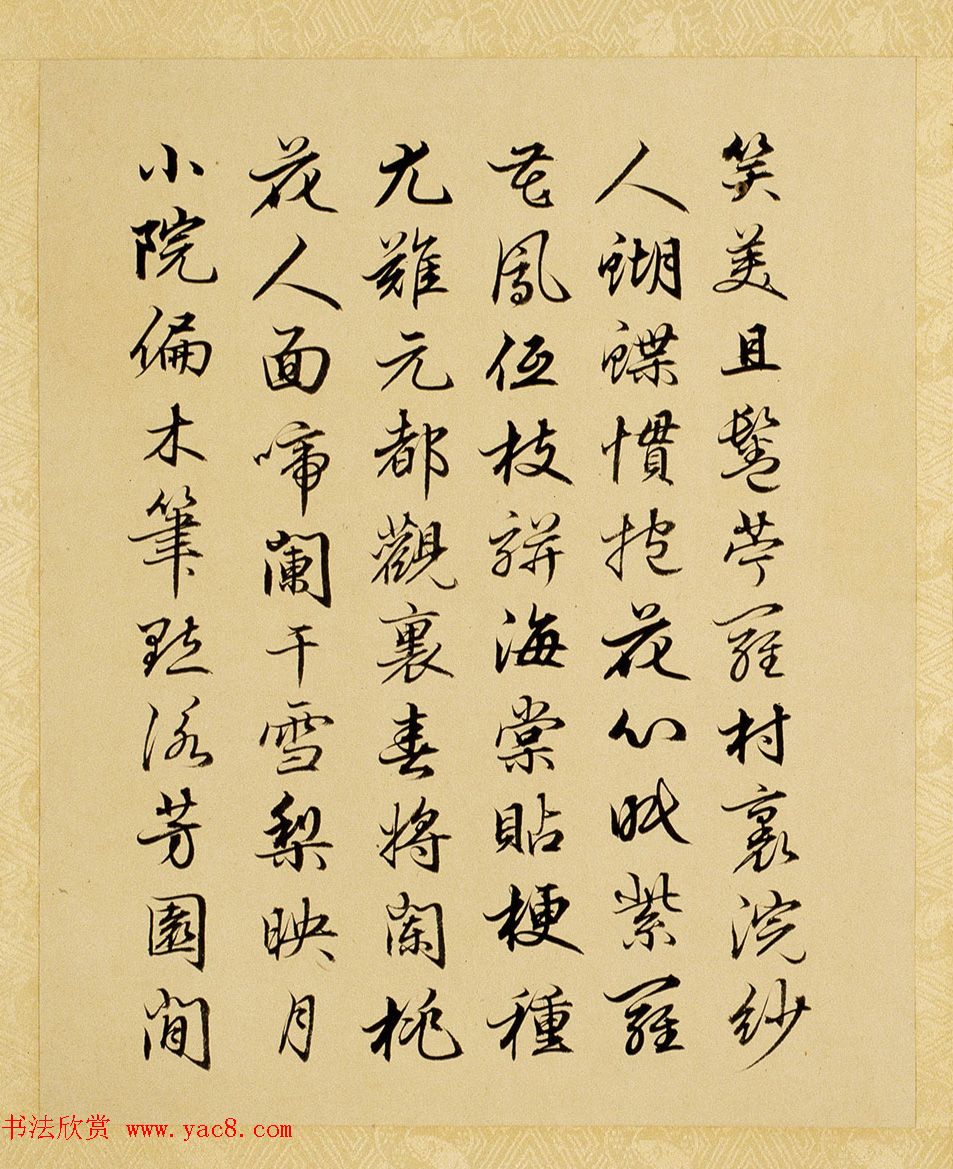 笑美且鬈苧羅村裏浣紗
人蝴蝶慣抱花心眠紫羅
鳳低枝海棠貼梗種
尤難元都觀裏春將闌桃
花人面啼闌干雪梨映月
小院偏木筆點添芳園間
书法欣赏 www.yac8.com